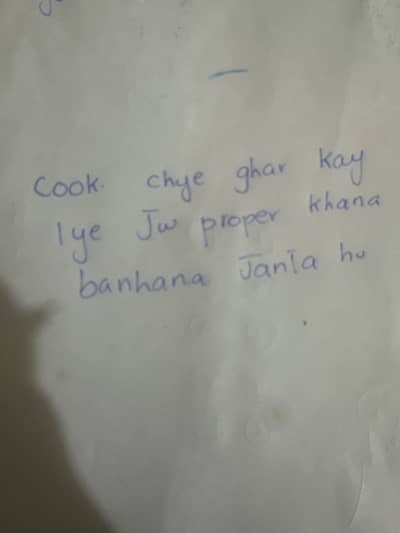 Cook. chye ghar kay
lye Jw proper khana
banhana Janta hu